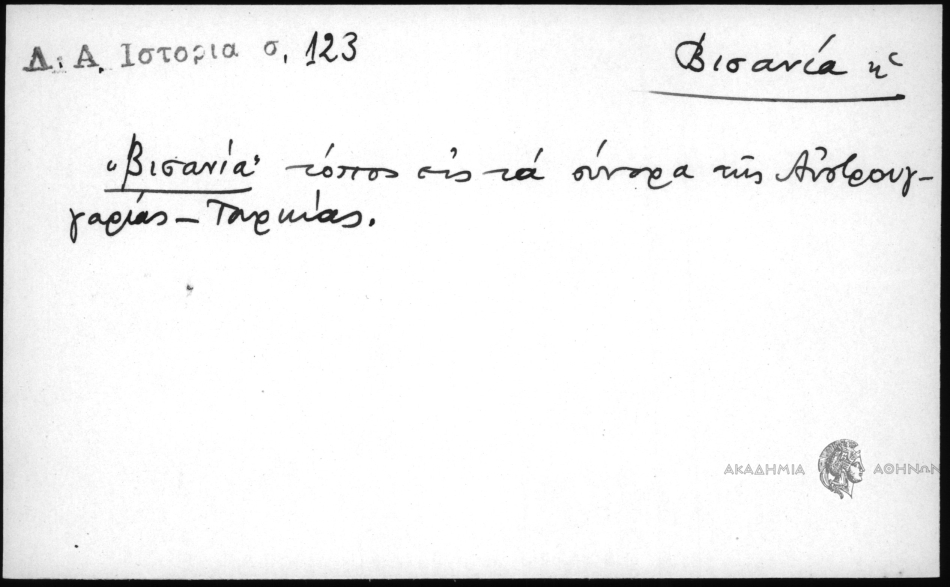 Δ. Α. Ιστορια σ. 123
Βισανία ἡ
"Βισανία" τόπος εἰς τά σύνορα τῆς Αὐστρουγ-
γαρίας - Τουρκίας.
ΑΚΑΔΗΜΙΑ ΑΘΗΝΩΝ